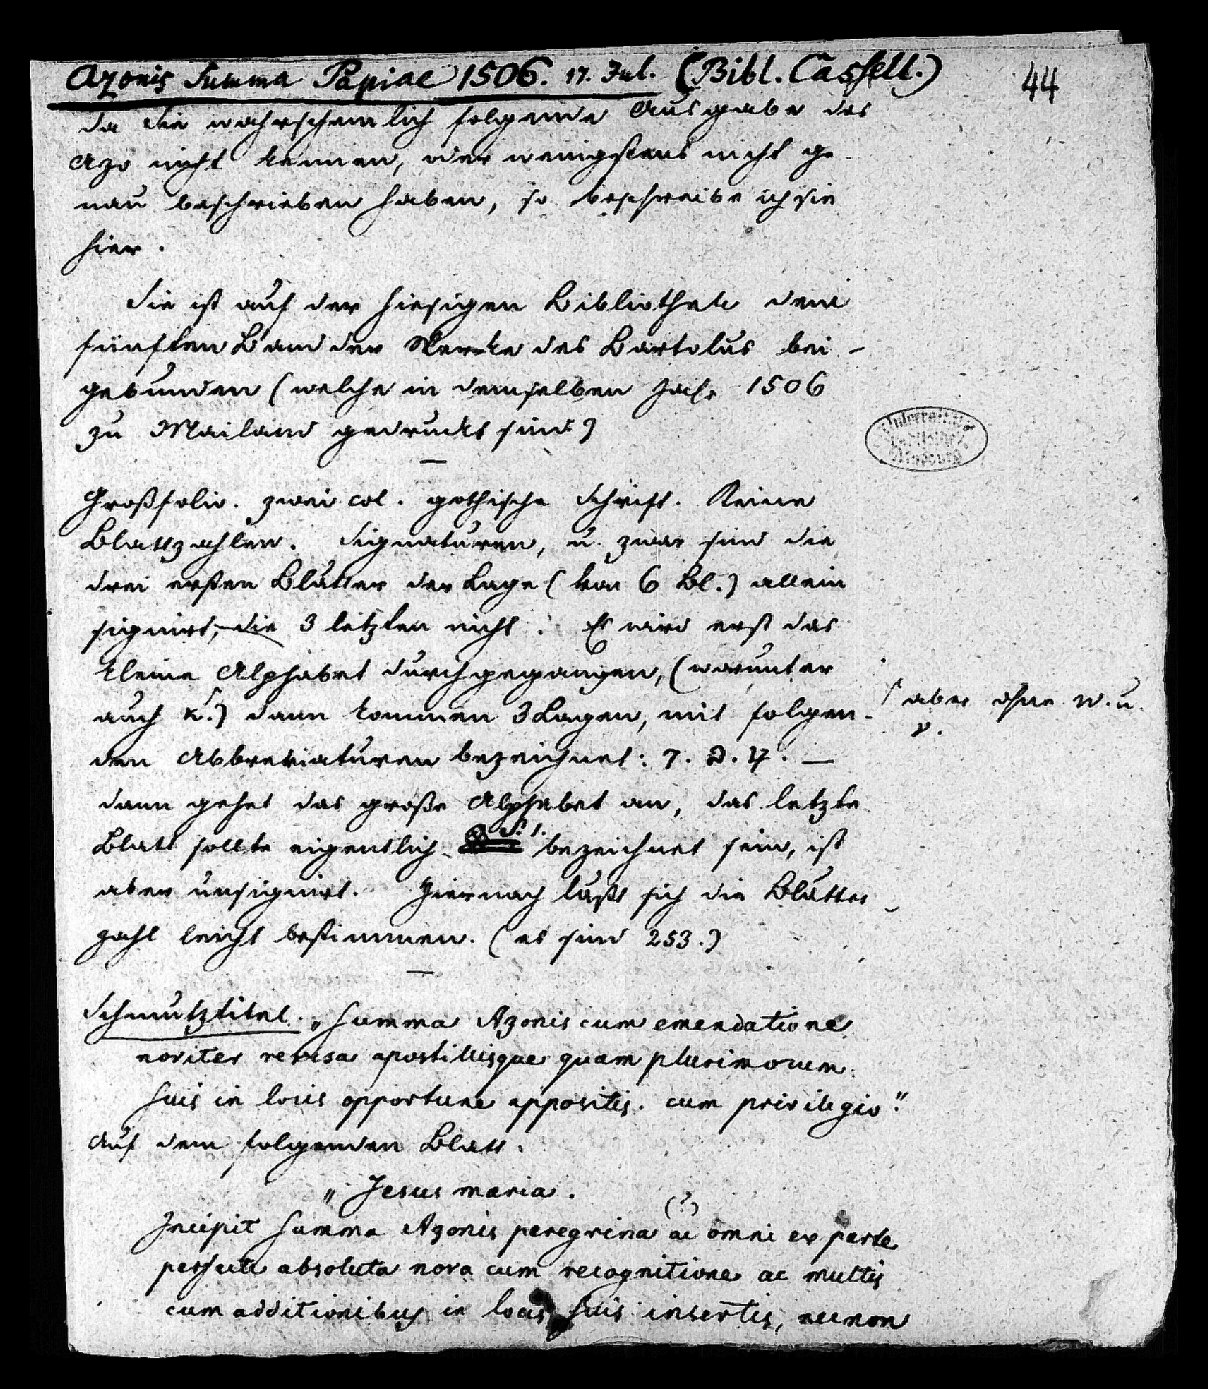 Azonis Summa Papiae 1506. 17. Jul. (Bibl. Cassell.)
44
da Sie wahrscheinlich folgende Ausgabe des
Azo nicht kennen, oder wenigstens nicht ge-
nau beschrieben haben, so beschreibe ich sie
hier.
Sie ist auf der hiesigen Bibliothek dem
fünften Band der Werke des Bartolus bei-
gebunden (welche in demselben Jahr 1506
zu Mailand gedruckt sind)
Großfolio. zwei col. gothische Schrift. Keine
Blattzahlen. Signaturen, u. zwar sind die
drei ersten Blätter der Lage (von 6 Bl.) allein
signirt, die 3 letzten nicht. Es wird erst das
kleine Alphabet durchgegangen, (worunter
auch k.) dann kommen 3 Lagen, mit folgen-
aber ohne w. u.
v.
den Abbreviaturen bezeichnet:
dann gehet das große Alphabet an, das letzte
Blatt sollte eigentlich S. 1. bezeichnet sein, ist
aber unsignirt. Hiernach läßt sich die Blätter-
zahl leicht bestimmen. (es sind 253.)
Schmutztitel. „Summa Azonis cum emendatione
noviter revisa apostillisque quam plurimorum
suis in locis opportune appositis. cum privilegio."
Auf dem folgenden Blatt.
„Jesus maria.
(?)
Incipit Summa Azonis peregrina ac omni ex parte
perfecte absoluta nova cum recognitione ac multis
cum additionibus in locis suis insertis, necnon